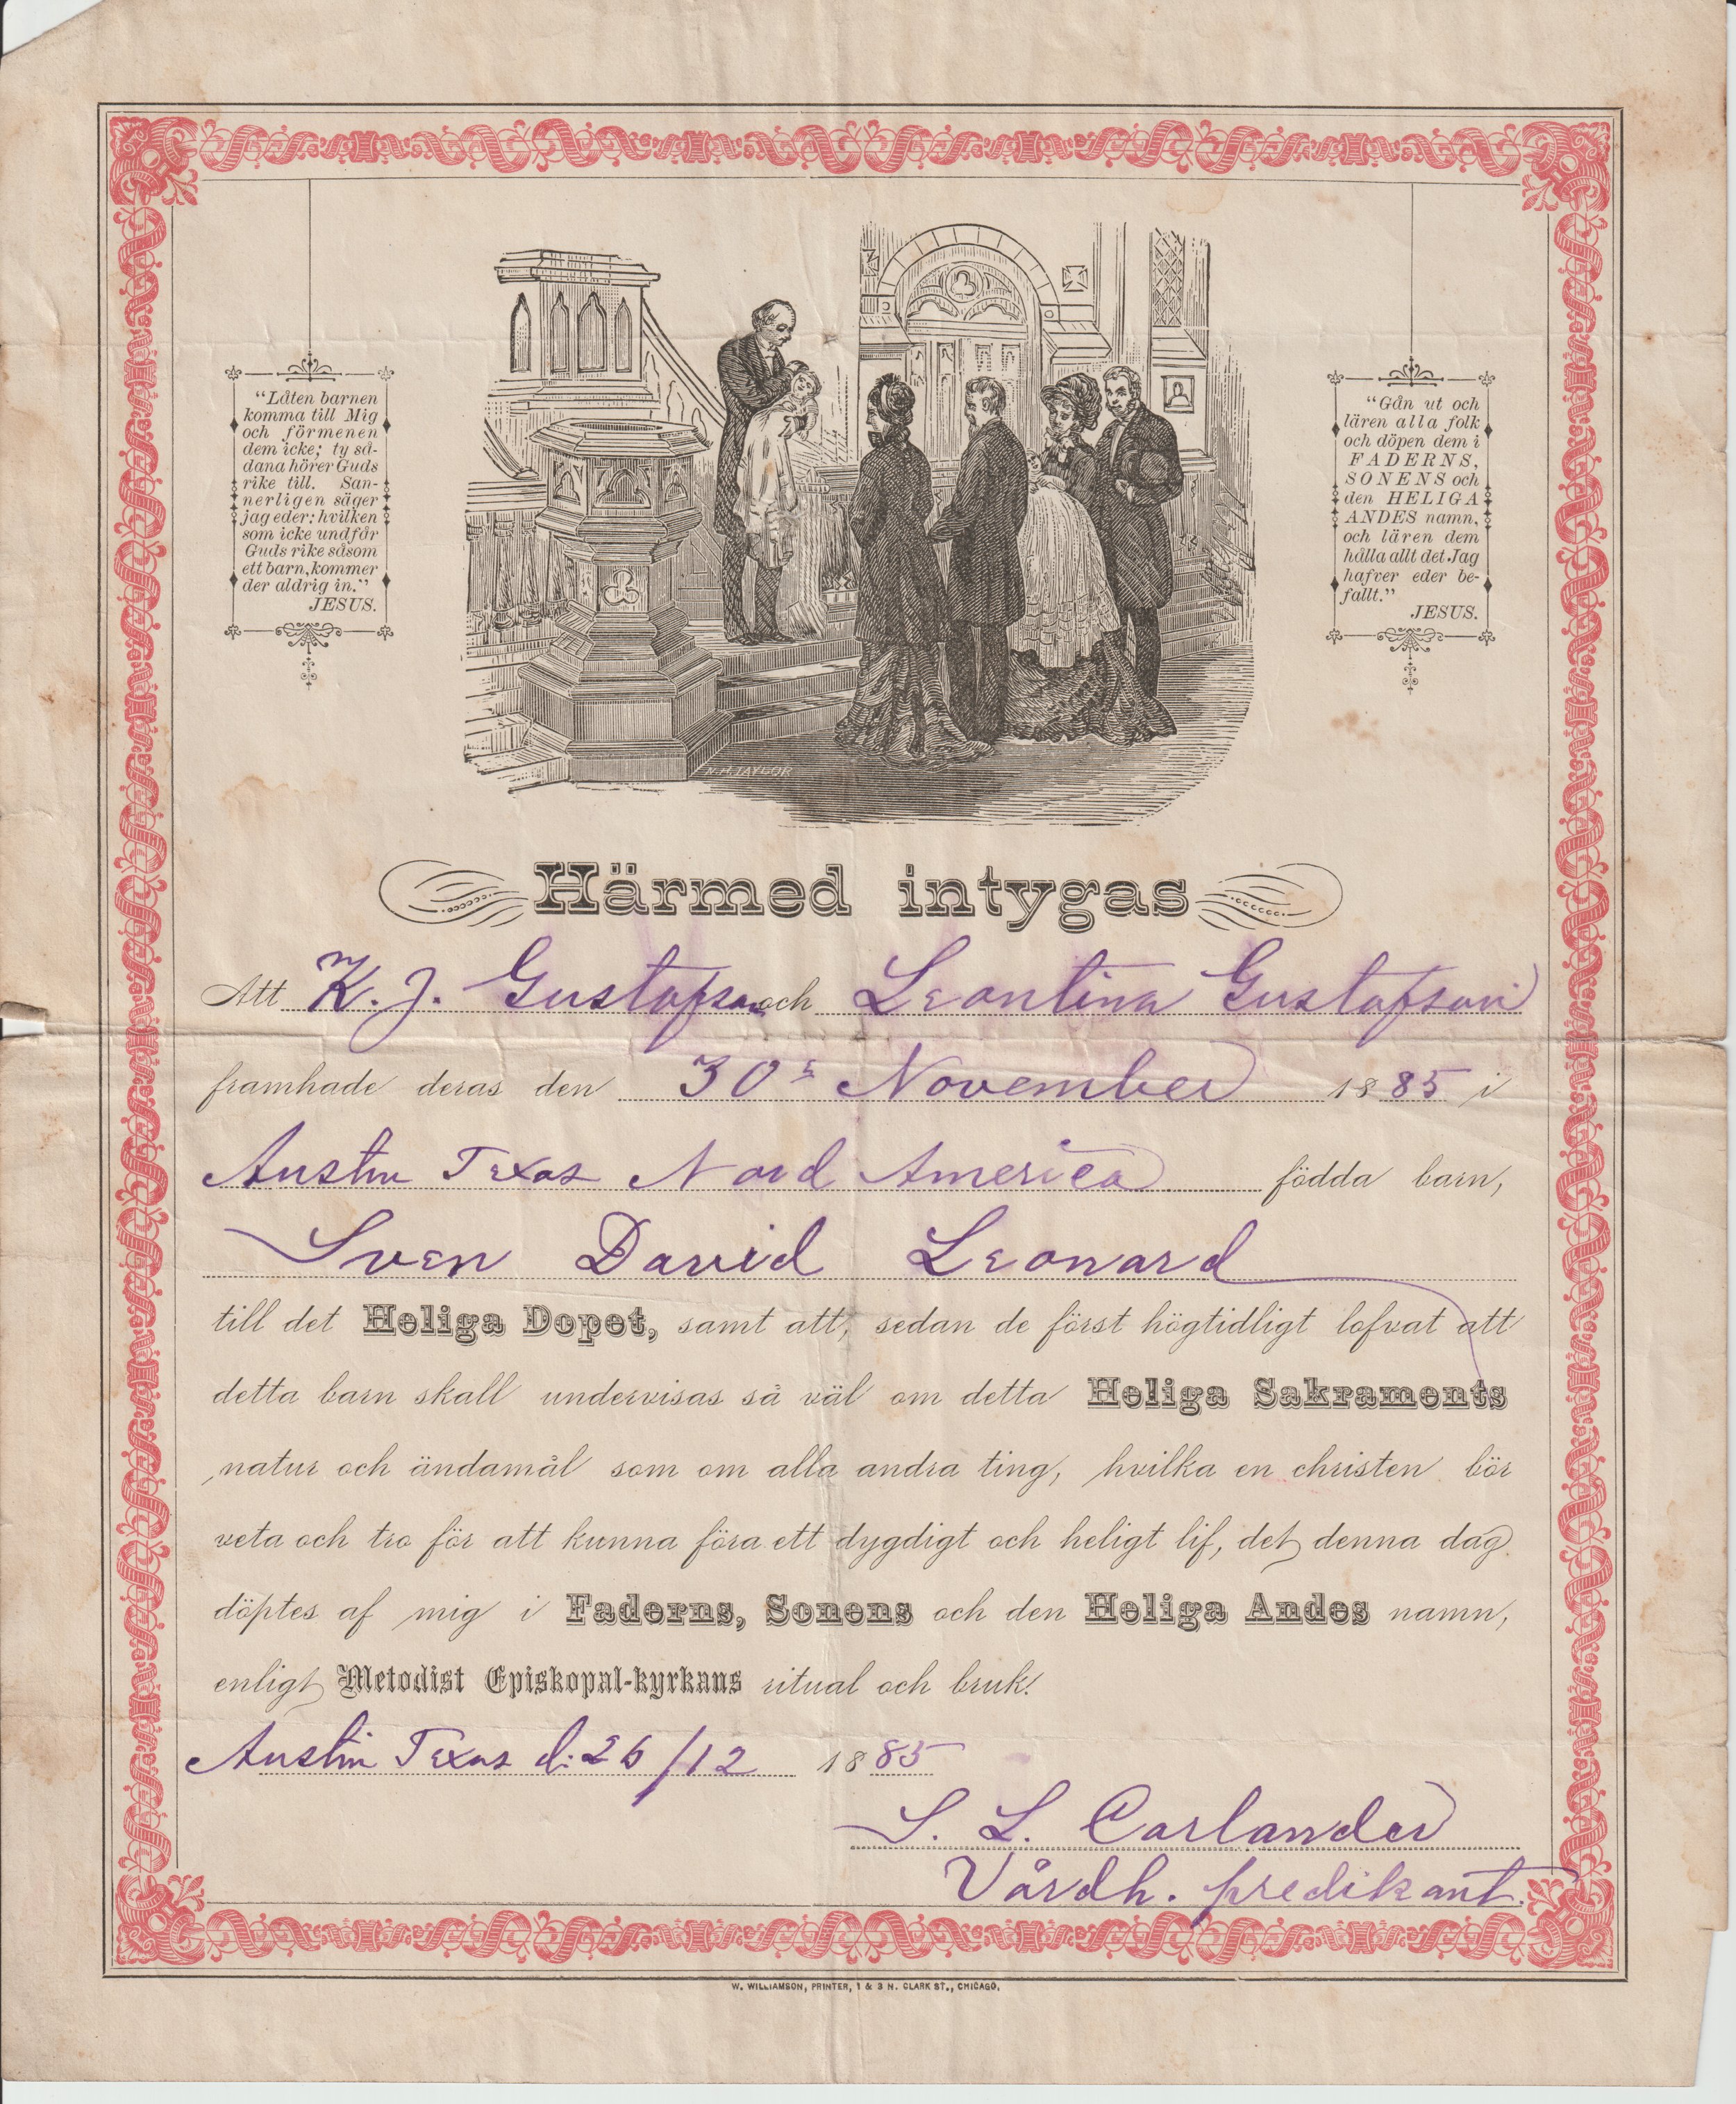 "Låten barnen
komma till Mig
och förmenen
dem icke; ty så-
dana hörer Guds
rike till. San-
nerligen säger
jag eder: hvilken
som icke undfår
Guds rike såsom
ett barn, kommer
der aldrig in."
JESUS.
"Gån ut och
lären alla folk
och döpen dem i
FADERNS,
SONENS och
den HELIGA
ANDES namn,
och lären dem
hålla allt det Jag
hafver eder be-
fallt."
JESUS.
N. H. TAYLOR
Härmed intygas
Att K. J. Gustafson och Leontina Gustafson
framhade deras den 30s November 1885 i
Austin Texas Nord America födda barn,
Sven David Leonard
till det Heliga Dopet, samt att, sedan de först högtidligt lofvat att
detta barn skall undervisas så väl om detta Heliga Sakraments
natur och ändamål som om alla andra ting, hvilka en christen bör
veta och tro för att kunna föra ett dygdigt och heligt lif, det denna dag
döptes af mig i Faderns, Sonens och den Heliga Andes namn,
enligt Metodist Episkopal-kyrkans ritual och bruk.
Austin Texas d: 26/12 1885
S. L. Carlander
Vårdh. predikant.
W. WILLIAMSON, PRINTER, 1 & 3 N. CLARK ST., CHICAGO.